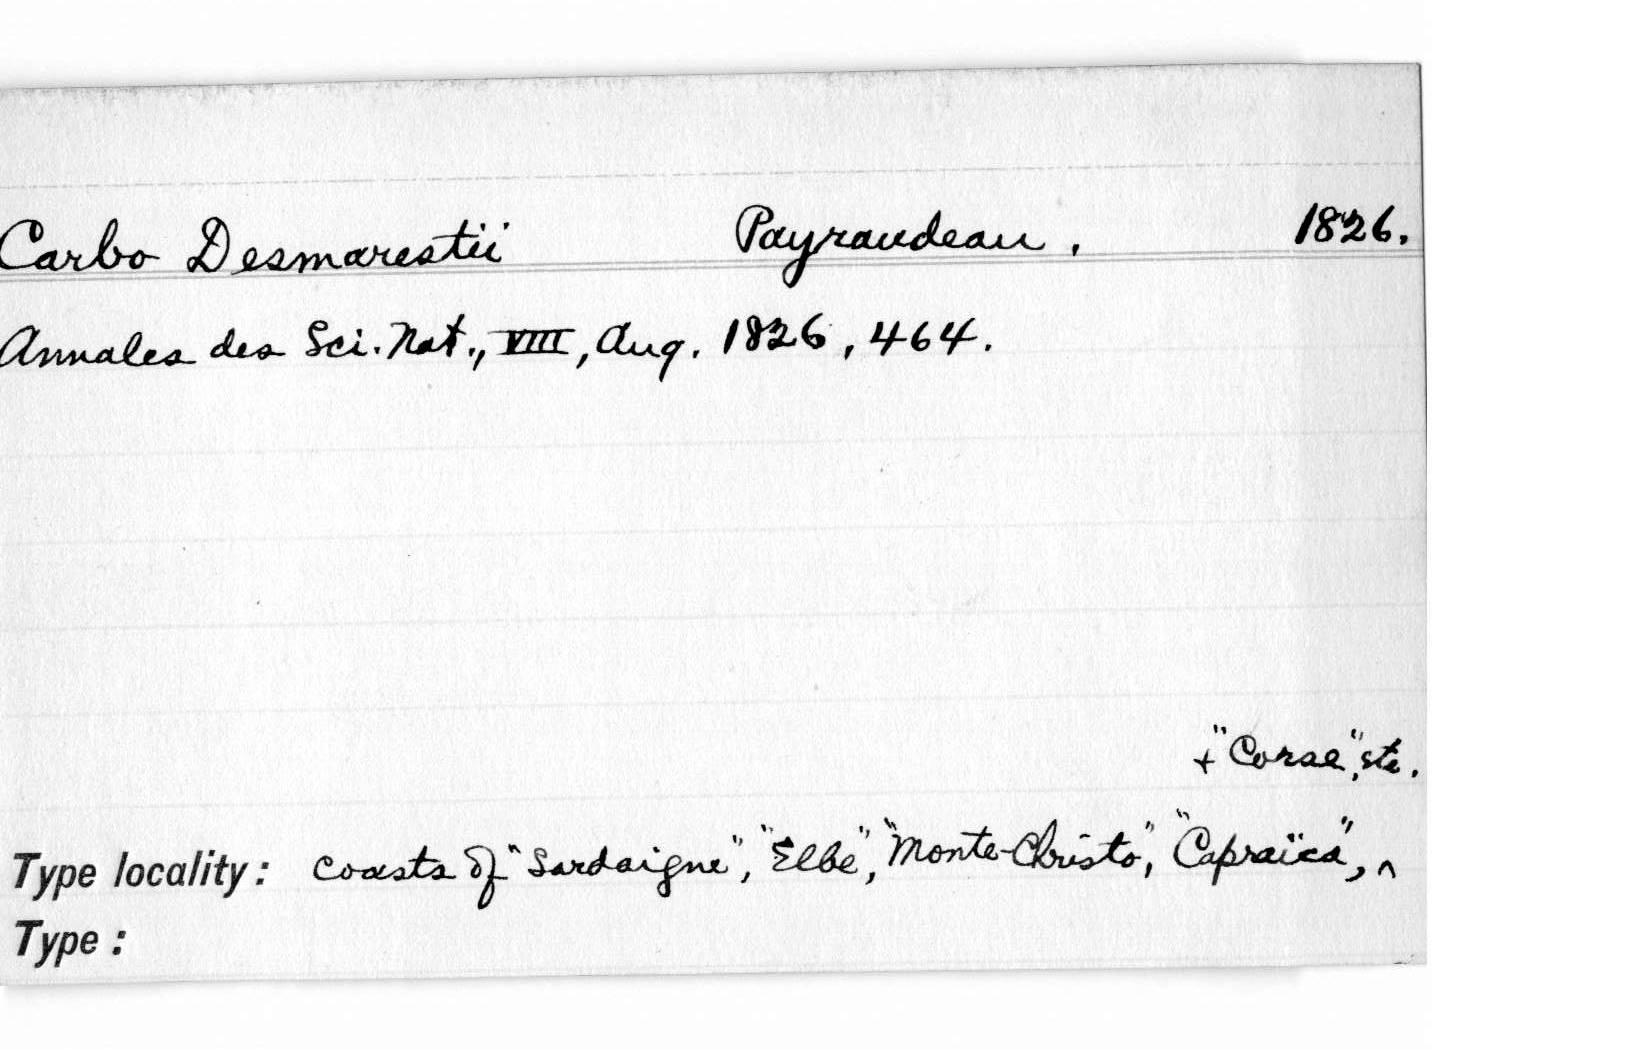 Carbo Desmarestii Payraudeau. 1826.
Annales des Sci. Nat., VIII, Aug. 1826, 464.
+ "Corse", etc.
Type locality: coasts of "Sardaigne", "Elbe", "Monte-Christo", "Capraïca", ^
Type: